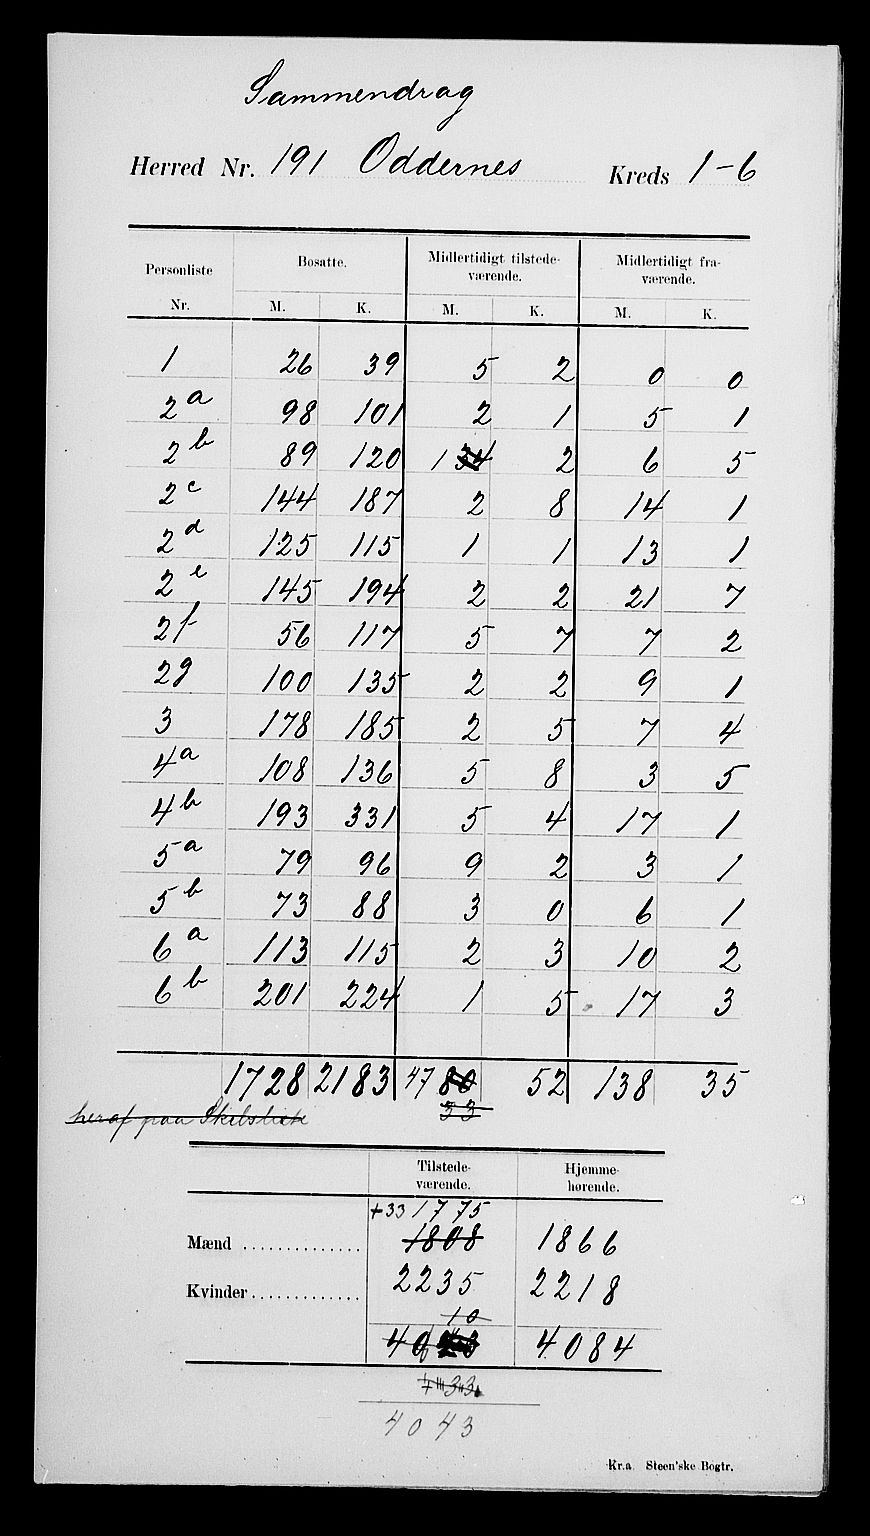 Sammendrag
Herred Nr. 191 Oddernes Kreds 1-6
Personliste Nr. Bosatte. Midlertidigt tilstede-værende. Midlertidigt fra-værende.
M. K. M. K. M. K.
1 26 39 5 2 0 0
2a 98 101 2 1 5 1
2b 89 120 1 34 2 6 5
2c 144 187 2 8 14 1
2d 125 115 1 1 13 1
2e 145 194 2 2 21 7
2f 56 117 5 7 7 2
2g 100 135 2 2 9 1
3 178 185 2 5 7 4
4a 108 136 5 8 3 5
4b 193 331 5 4 17 1
5a 79 96 9 2 3 1
5b 73 88 3 0 6 1
6a 113 115 2 3 10 2
6b 201 224 1 5 17 3
1728 2183 47 80 52 138 35
heraf paa Skibsliste 33
Tilstede-værende. Hjemme-hørende.
+33 1775
Mænd 1808 1866
Kvinder 2235 2218
10
4084
33
4043
Kr.a Steen'ske Bogtr.